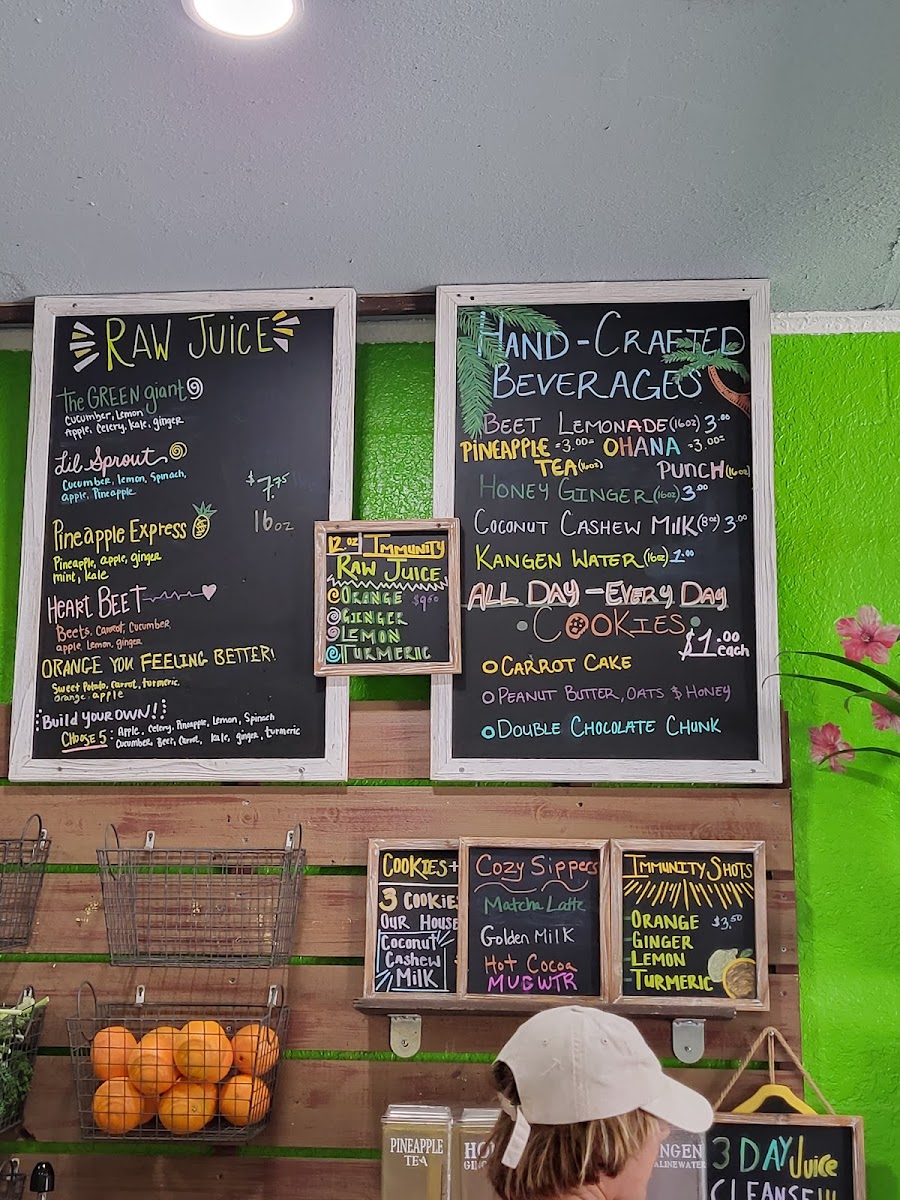 RAW JUICE
the GREEN giant
Cucumber, Lemon
Apple, Celery, kale, ginger
Lil Sprout
Cucumber, lemon, Spinach,
apple, Pineapple
$7.75
16oz
Pineapple Express
Pineapple, apple, ginger
mint, kale
HEART BEET
Beets, Carrot, Cucumber
apple, Lemon, ginger
ORANGE YOU FEELING BETTER!
Sweet Potato, Carrot, turmeric,
orange, apple
Build YOUR OWN!!
CHOOSE 5 : Apple, Celery, Pineapple, Lemon, Spinach
Cucumber, Beet, Carrot, kale, ginger, turmeric
12oz IMMUNITY
RAW JUICE
ORANGE
GINGER
LEMON
TURMERIC
HAND-CRAFTED
BEVERAGES
BEET LEMONADE (16oz) 3.00
PINEAPPLE =3.00= OHANA =3.00=
TEA (16oz) PUNCH (16oz)
HONEY GINGER (16oz) 3.00
COCONUT CASHEW MILK (8oz) 3.00
KANGEN WATER (16oz) 1.00
ALL DAY - EVERY DAY
COOKIES
$1.00 each
CARROT CAKE
PEANUT BUTTER, OATS $ HONEY
DOUBLE CHOCOLATE CHUNK
COOKIES+
3 COOKIE
OUR HOUSE
Coconut
Cashew
Milk
COZY SIPPERS
Matcha Latte
Golden Milk
Hot Cocoa
MUGWTR
IMMUNITY SHOTS
ORANGE $3.50
GINGER
LEMON
TURMERIC
PINEAPPLE
TEA
HO
GIN
NGEN
ALINE WATER
3 DAY Juice
CLEANSE!!!